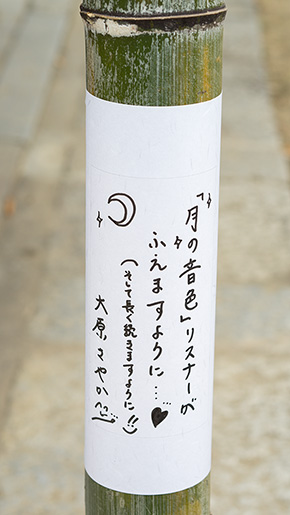 「月の音色」リスナーが
ふえますように…♥
(そして長く続きますように!!)
大原さやか